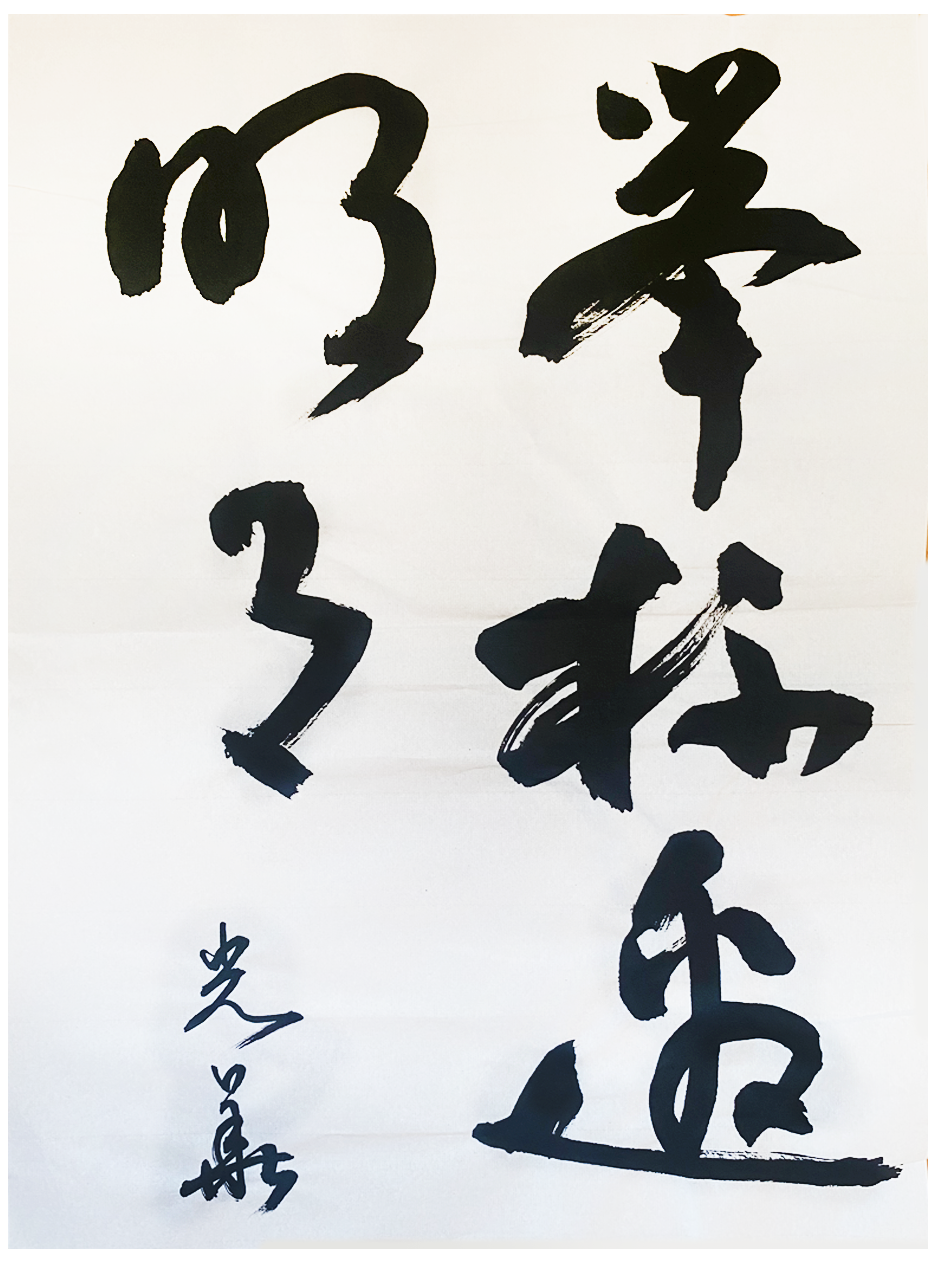 举杯邀
明月
光華